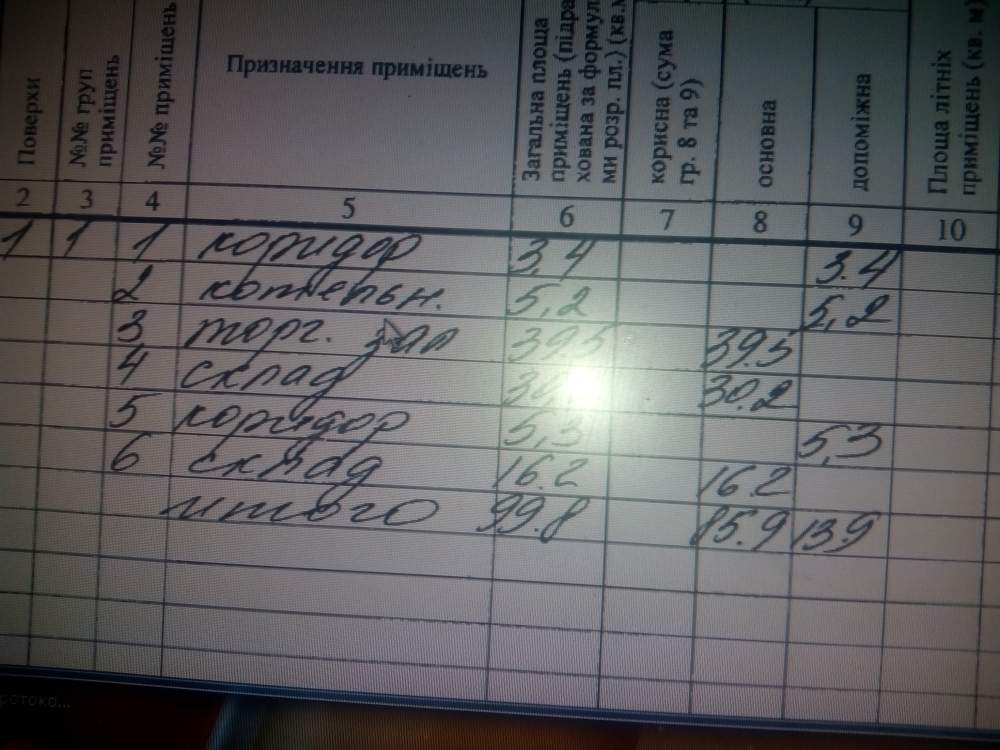 Поверхи
№№ груп
приміщень
№№ приміщень
Призначення приміщень
Загальна площа
приміщень (підра
хована за формул
ми розр. пл.) (кв.м
корисна (сума
гр. 8 та 9)
основна
допоміжна
Площа літніх
приміщень (кв. м)
2 3 4 5 6 7 8 9 10
1 1 1 коридор 3,4 3.4
2 котельн. 5,2 5,2
3 торг. зал 39.5 39.5
4 склад 30.2
5 коридор 5,3 5,3
6 склад 16.2 16.2
итого 99.8 85.9 13.9
ротоко...